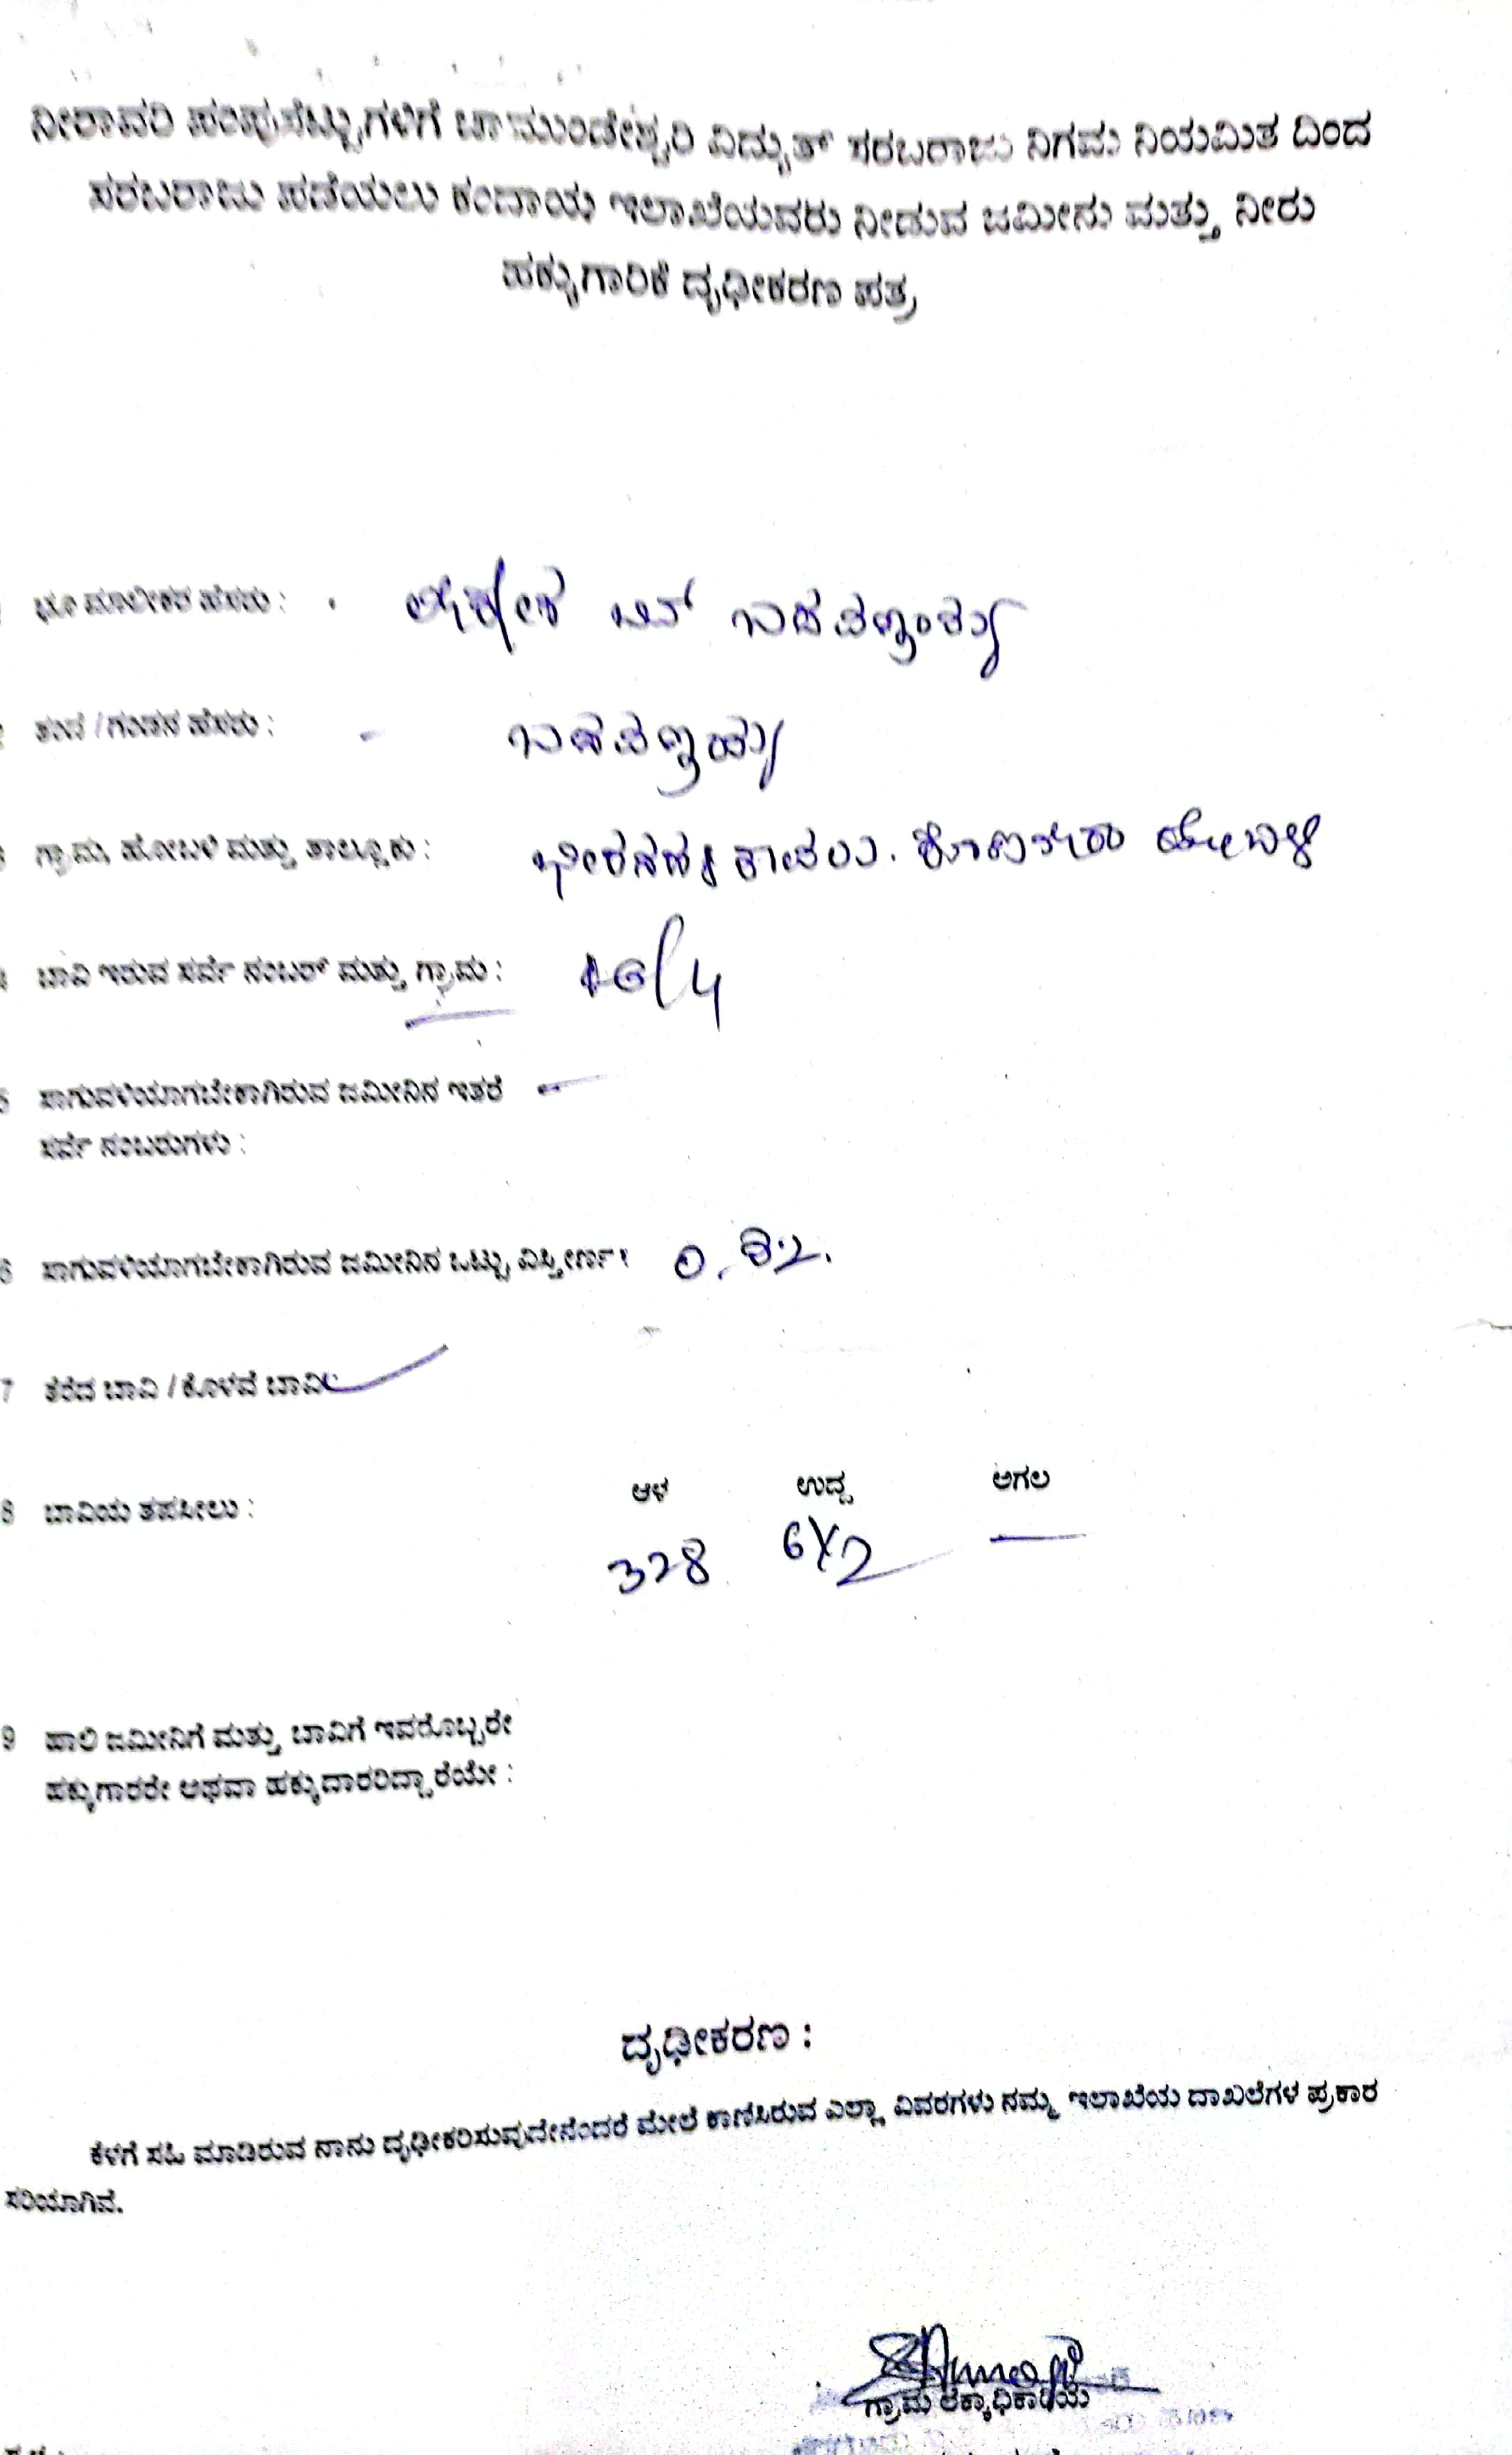 ನೀರಾವರಿ ಪಂಪುಸೆಟ್ಟುಗಳಿಗೆ ಚಾಮುಂಡೇಶ್ವರಿ ವಿದ್ಯುತ್ ಸರಬರಾಜು ನಿಗಮ ನಿಯಮಿತ ದಿಂದ
ಸರಬರಾಜು ಪಡೆಯಲು ಕಂದಾಯ ಇಲಾಖೆಯವರು ನೀಡುವ ಜಮೀನು ಮತ್ತು ನೀರು
ಹಕ್ಕುಗಾರಿಕೆ ದೃಢೀಕರಣ ಪತ್ರ
ಭೂ ಮಾಲೀಕರ ಹೆಸರು :
ತಂದೆ / ಗಂಡನ ಹೆಸರು : -
ಗ್ರಾಮ, ಹೋಬಳಿ ಮತ್ತು ತಾಲ್ಲೂಕು : ಹೋಬಳಿ
ಬಾವಿ ಇರುವ ಸರ್ವೆ ನಂಬರ್ ಮತ್ತು ಗ್ರಾಮ : 16/4
5 ಸಾಗುವಳಿಯಾಗಬೇಕಾಗಿರುವ ಜಮೀನಿನ ಇತರೆ -
ಸರ್ವೆ ನಂಬರುಗಳು :
6 ಸಾಗುವಳಿಯಾಗಬೇಕಾಗಿರುವ ಜಮೀನಿನ ಒಟ್ಟು ವಿಸ್ತೀರ್ಣ :
7 ತೆರೆದ ಬಾವಿ / ಕೊಳವೆ ಬಾವಿ
ಆಳ ಉದ್ದ ಅಗಲ
8 ಬಾವಿಯ ತಪಸೀಲು :
328 6X2 —
9 ಹಾಲಿ ಜಮೀನಿಗೆ ಮತ್ತು ಬಾವಿಗೆ ಇವರೊಬ್ಬರೇ
ಹಕ್ಕುಗಾರರೇ ಅಥವಾ ಹಕ್ಕುದಾರರಿದ್ದಾರೆಯೇ :
ದೃಢೀಕರಣ :
ಕೆಳಗೆ ಸಹಿ ಮಾಡಿರುವ ನಾನು ದೃಢೀಕರಿಸುವುದೇನೆಂದರೆ ಮೇಲೆ ಕಾಣಿಸಿರುವ ಎಲ್ಲಾ ವಿವರಗಳು ನಮ್ಮ ಇಲಾಖೆಯ ದಾಖಲೆಗಳ ಪ್ರಕಾರ
ಸರಿಯಾಗಿವೆ.
ಗ್ರಾಮ ಲೆಕ್ಕಾಧಿಕಾರಿಯ